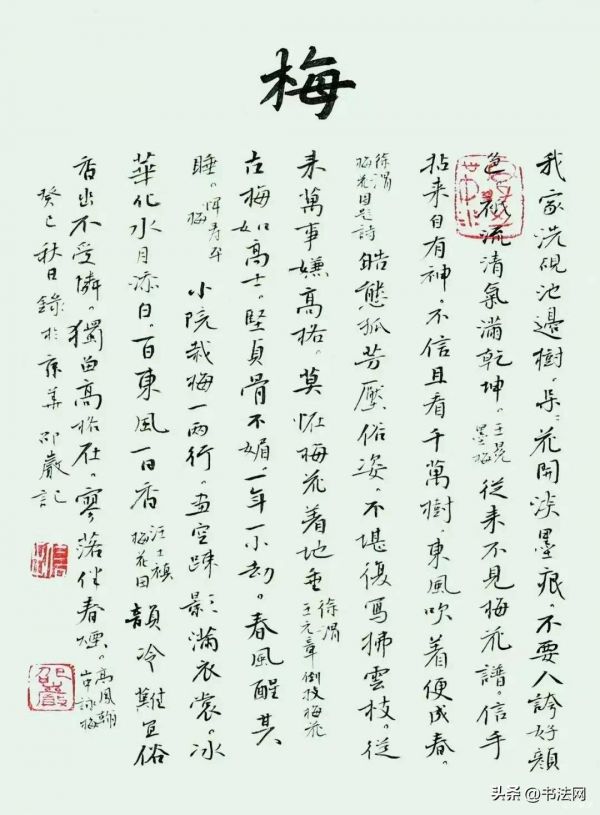 梅
我家洗硯池邊樹。朵〻花開淡墨痕。不要人誇好顏
色。祇流清氣滿乾坤。王冕墨梅 從来不見梅花譜。信手
拈来自有神。不信且看千萬樹。東風吹着便成春。
徐渭梅花圖題詩 皓態孤芳壓俗姿。不堪復寫拂雲枝。從
来萬事嫌高格。莫怪梅花着地垂 徐渭王元章倒枝梅花
古梅如高士。堅貞骨不媚。一年一小劫。春風醒其
睡。惲壽平梅 小院栽梅一兩行。畫空疎影滿衣裳。冰
華化水月添白。一日東風一日香 汪士慎梅花圖 韻冷難宜俗
香出不受憐。獨留高格在。寥落伴春煙。高鳳翰山中詠梅
癸巳秋日錄於京華 邵巖記
邵巖
头条 @书法网